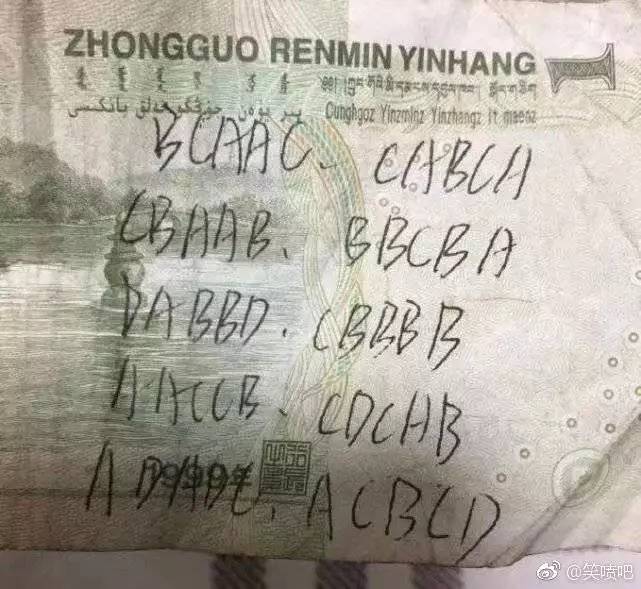 ZHONGGUO RENMIN YINHANG 1
Cunghgoz Yinzminz Yinzhangz It maenz
BCAAC、CABCA
CBAAB、BBCBA
DABBD、CBBBB
AACCB、CDCAB
1999年
ACBCD
@笑喷吧